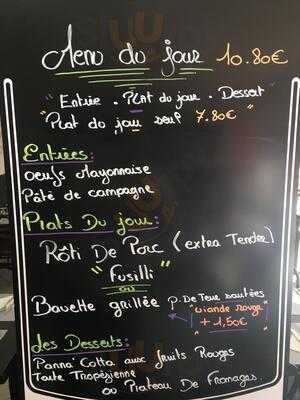 Menu du jour 10.80€
"Entrée . Plat du jour . Dessert"
"Plat du jour seul" 7.80€
Entrées:
Oeufs Mayonnaise
Pâté de campagne
Plats Du jour:
Rôti De Porc (extra Tendre)
"Fusilli"
ou
Bavette grillée P. De Terre sautées
"viande rouge"
+ 1,50€
Les Desserts:
Panna Cotta aux fruits Rouges
Tarte Tropézienne
ou Plateau De Fromages.